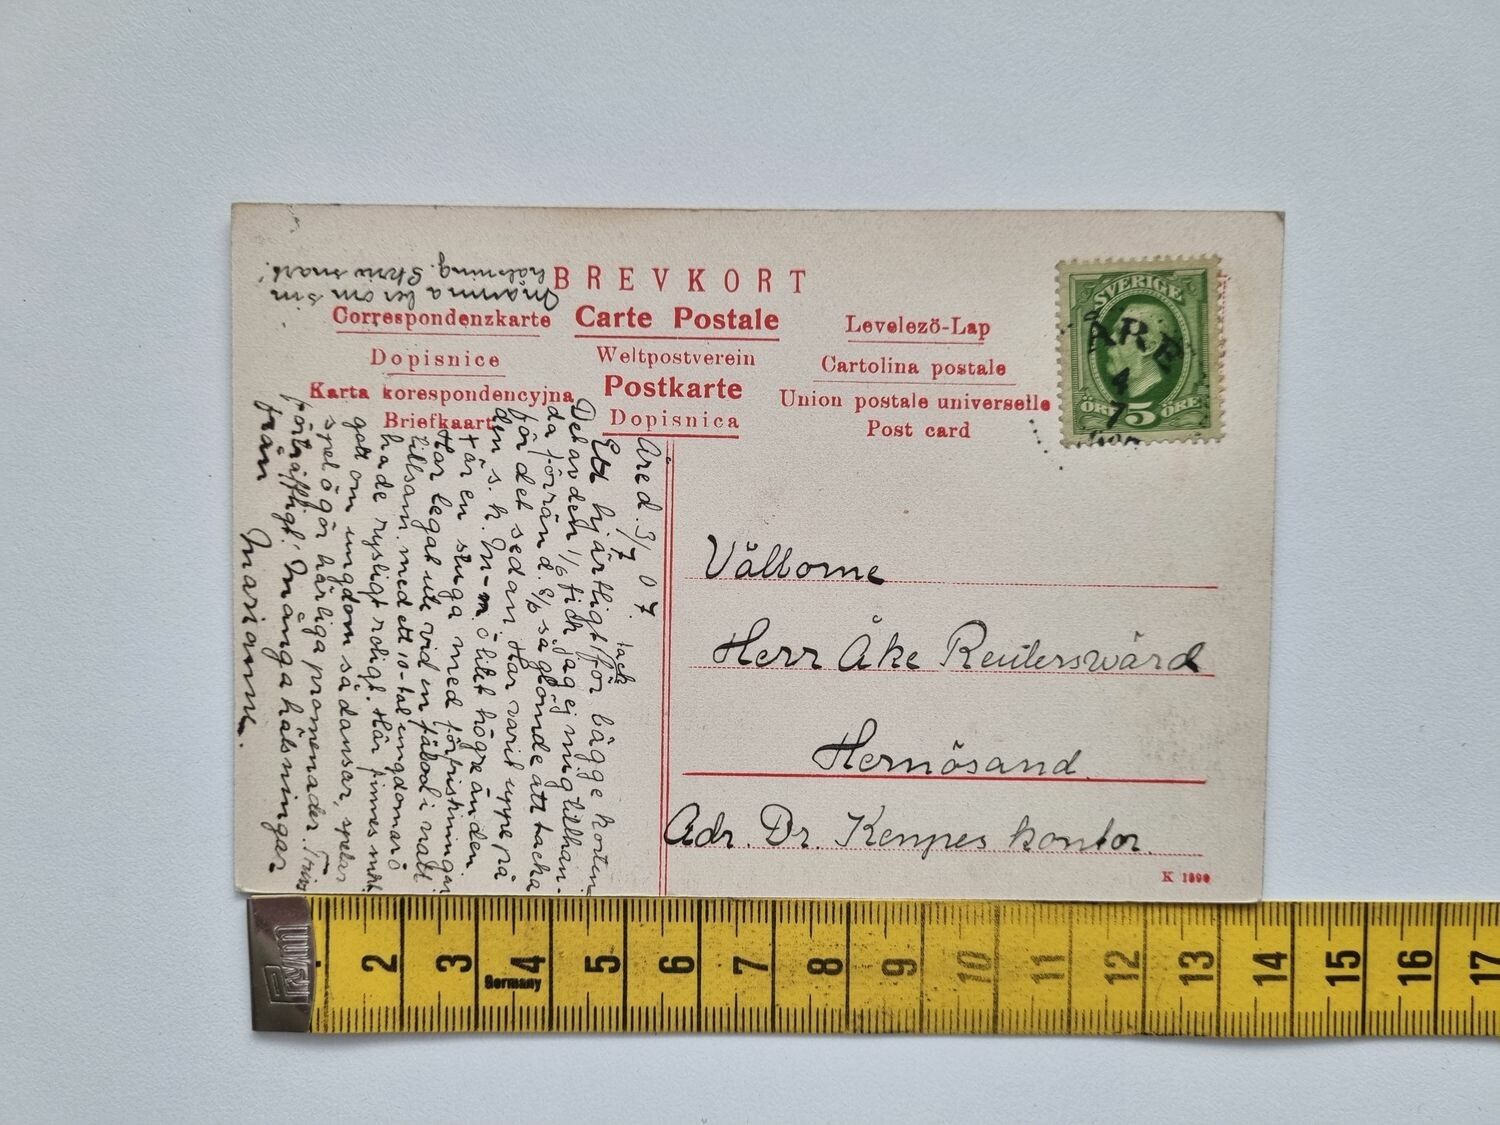 BREVKORT
Correspondenzkarte
Carte Postale
Levelező-Lap
Dopisnice
Weltpostverein
Cartolina postale
Karta korespondencyjna
Postkarte
Union postale universelle
Briefkaart
Dopisnica
Post card
SVERIGE
ÅRE
4
7
ÖRE 5 ÖRE
Mamma ber om sin
hälsning. Skriv snart!
Åre d. 3/7 07.
Ett hjärtligt tack för bägge korten.
Det av den 1/6 fick jag ej mig tillhan-
da förrän d. 8/6 så glömde att tacka
för det sedan. Har varit uppe på
den s. k. M-m ö litet högre än den
är en stuga med förfriskningar
Har legat ute vid en fäbod i natt
tillsam. med ett 10-tal ungdomar ö
hade rysligt roligt. Här finnes mkt
gott om ungdom så dansar, spelar
spel ö gör härliga promenader. Trivs
förträffligt. Många hälsningar
från Marianne.
Välborne
Herr Åke Reuterswärd
Hernösand.
Adr. Dr. Kempes kontor.
K 1890
Prym
2 3 4 5 6 7 8 9 10 11 12 13 14 15 16 17
Germany